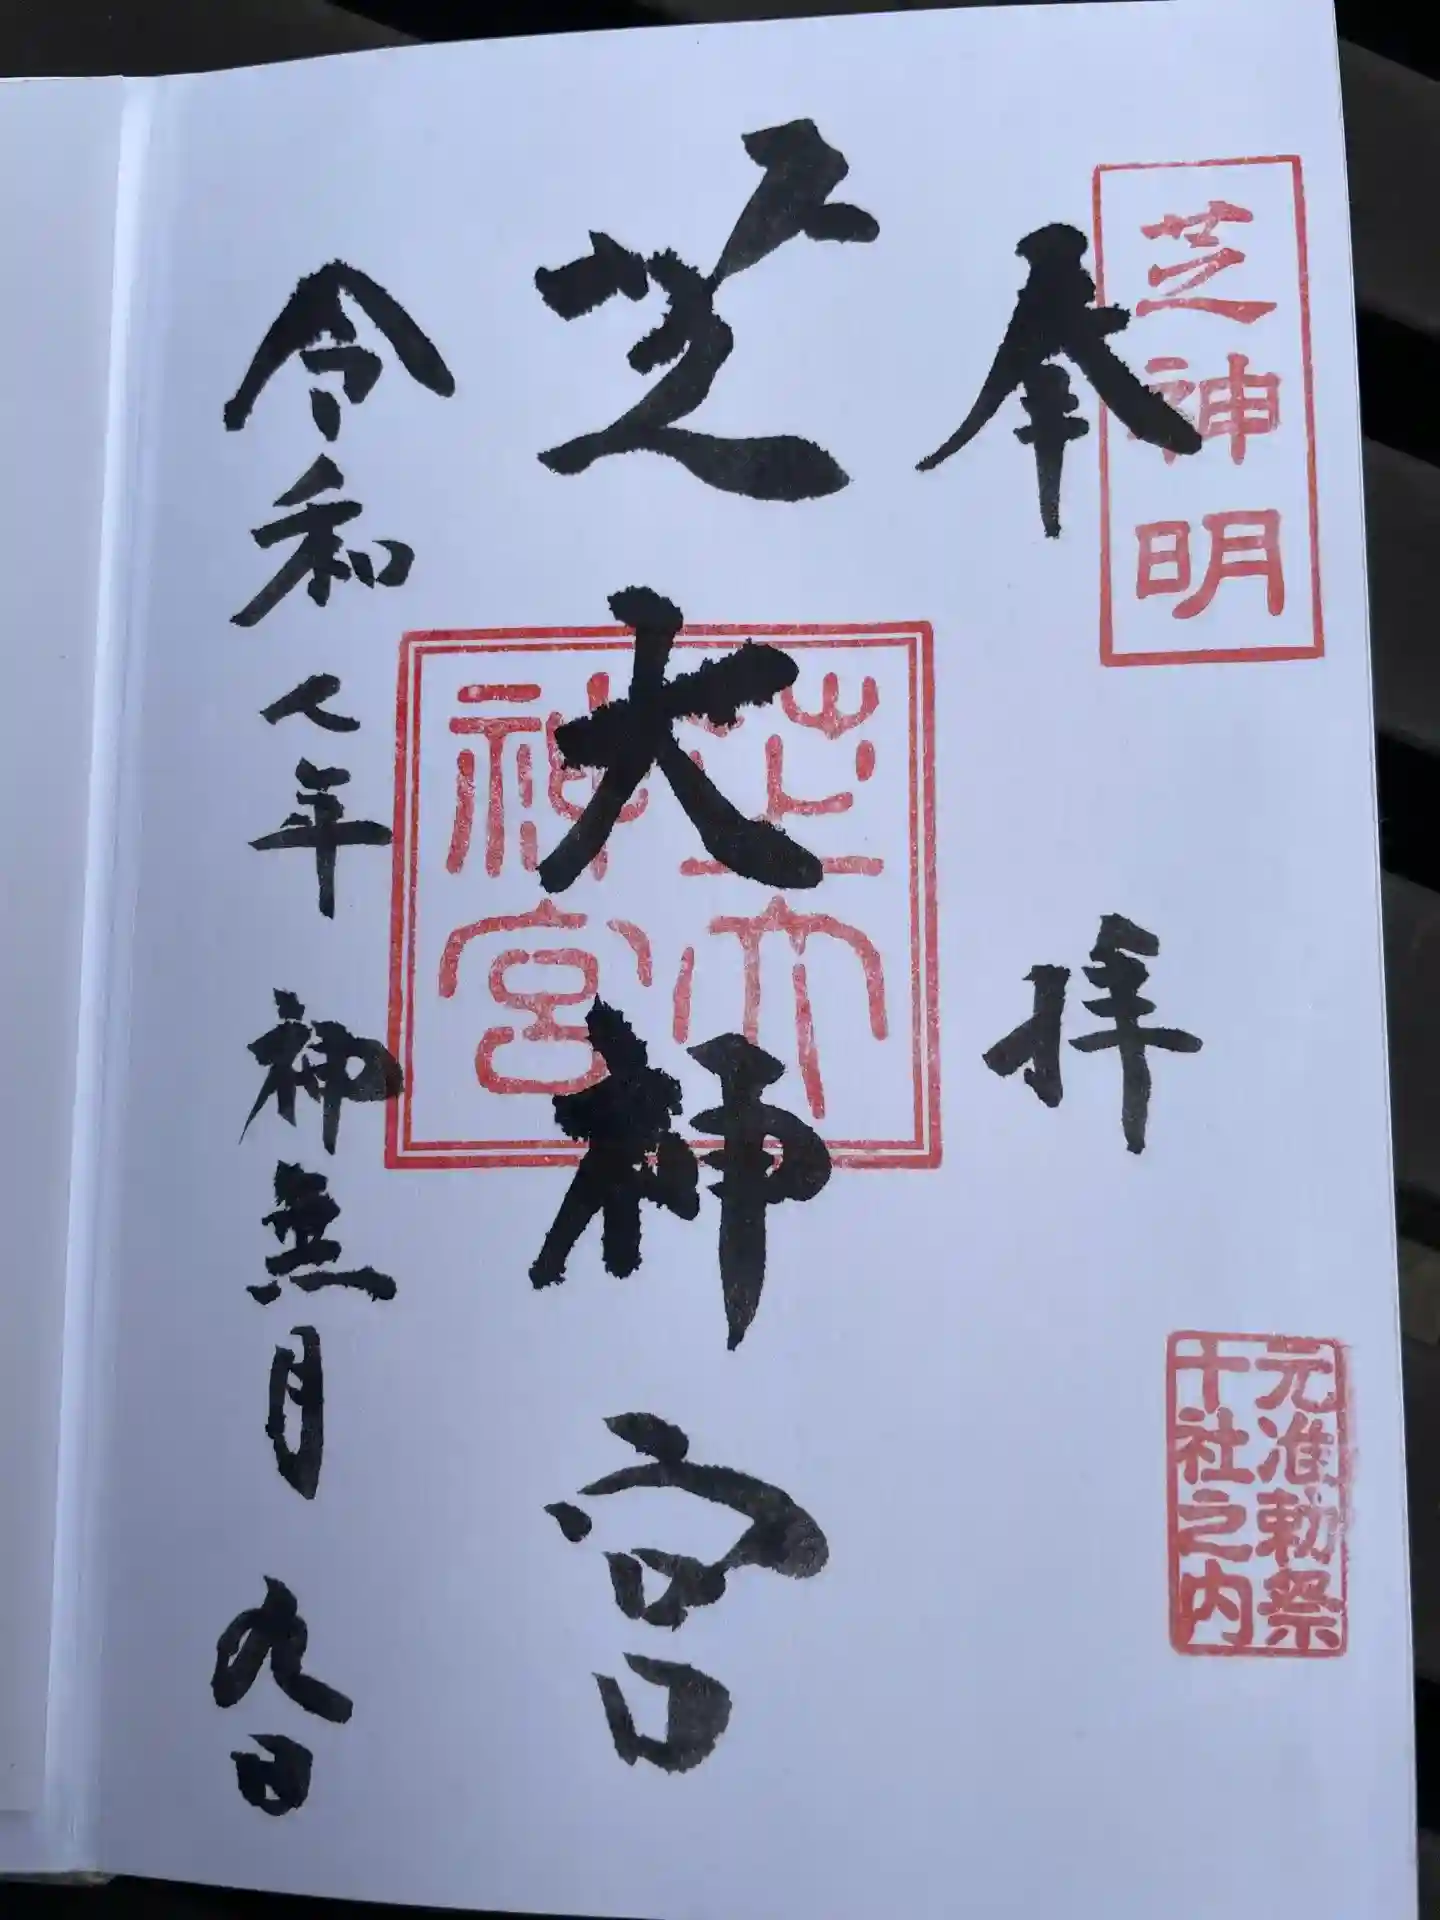 芝神明
奉拝
元准勅祭
十社之内
芝大神宮
芝大
神宮
令和七年神無月九日